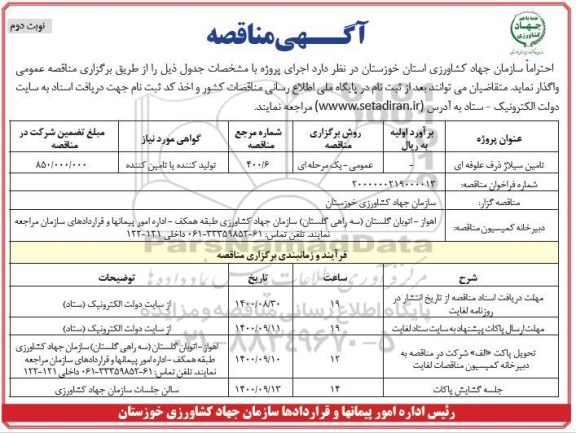 نوبت دوم
آگهی مناقصه
همه با هم
جهاد
کشاورزی
احتراماً سازمان جهاد کشاورزی استان خوزستان در نظر دارد اجرای پروژه با مشخصات جدول ذیل را از طریق برگزاری مناقصه عمومی
واگذار نماید. متقاضیان می توانند بعد از ثبت نام در پایگاه ملی اطلاع رسانی مناقصات کشور و اخذ کد ثبت نام جهت دریافت اسناد به سایت
دولت الکترونیک - ستاد به آدرس (wwww.setadiran.ir) مراجعه نمایند.
عنوان پروژه | برآورد اولیه به ریال | روش برگزاری مناقصه | شماره مرجع مناقصه | گواهی مورد نیاز | مبلغ تضمین شرکت در مناقصه
تامین سیلاژ ذرت علوفه ای | - | عمومی - یک مرحله ای | ۴۰۰/۶ | تولید کننده یا تامین کننده | ۸۵۰/۰۰۰/۰۰۰
شماره فراخوان مناقصه: ۲۰۰۰۰۰۰۲۱۹۰۰۰۰۱۳
مناقصه گزار: سازمان جهاد کشاورزی خوزستان
دبیرخانه کمیسیون مناقصه: اهواز - اتوبان گلستان (سه راهی گلستان) سازمان جهاد کشاورزی طبقه همکف - اداره امور پیمانها و قراردادهای سازمان مراجعه
نمایند. تلفن تماس: ۶۱-۳۳۳۵۹۸۵۲-۰۶۱ داخلی ۱۲۱-۱۲۲
فرآیند و زمانبندی برگزاری مناقصه
شرح | ساعت | تاریخ | توضیحات
مهلت دریافت اسناد مناقصه از تاریخ انتشار در روزنامه لغایت | ۱۹ | ۱۴۰۰/۰۸/۳۰ | از سایت دولت الکترونیک (ستاد)
مهلت ارسال پاکات پیشنهاد به سایت ستاد لغایت | ۱۹ | ۱۴۰۰/۰۹/۱۱ | از سایت دولت الکترونیک (ستاد)
تحویل پاکت «الف» شرکت در مناقصه به دبیرخانه کمیسیون مناقصات لغایت | ۱۲ | ۱۴۰۰/۰۹/۱۰ | اهواز - اتوبان گلستان (سه راهی گلستان) سازمان جهاد کشاورزی طبقه همکف - اداره امور پیمانها و قراردادهای سازمان مراجعه نمایند. تلفن تماس: ۶۱-۳۳۳۵۹۸۵۲-۰۶۱ داخلی ۱۲۱-۱۲۲
جلسه گشایش پاکات | ۱۴ | ۱۴۰۰/۰۹/۱۳ | سالن جلسات سازمان جهاد کشاورزی
ParsNamadData
پایگاه اطلاع رسانی مناقصه و مزایده
۰۲۱-۸۸۳۴۹۶۷۰-۵
رئیس اداره امور پیمانها و قراردادها سازمان جهاد کشاورزی خوزستان